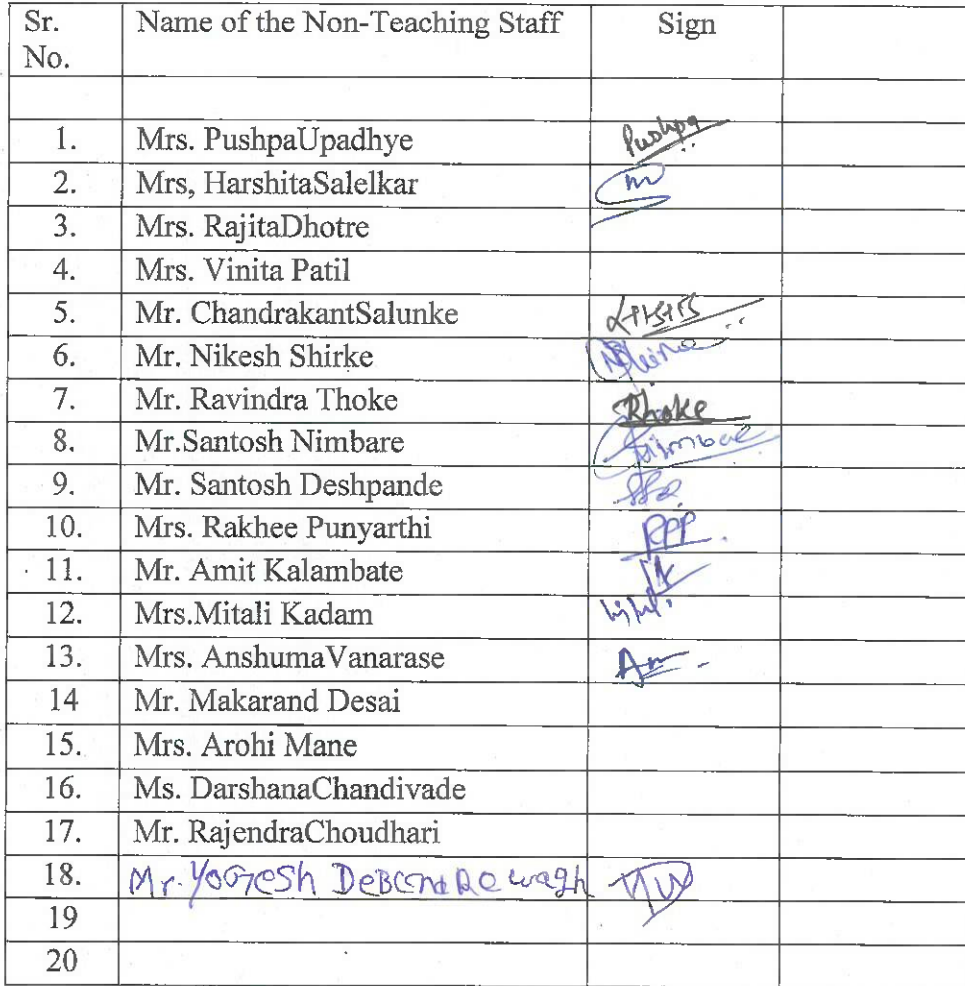 Sr. No. Name of the Non-Teaching Staff Sign
1. Mrs. PushpaUpadhye Pushpa
2. Mrs, HarshitaSalelkar
3. Mrs. RajitaDhotre
4. Mrs. Vinita Patil
5. Mr. ChandrakantSalunke
6. Mr. Nikesh Shirke
7. Mr. Ravindra Thoke Rhoke
8. Mr.Santosh Nimbare
9. Mr. Santosh Deshpande
10. Mrs. Rakhee Punyarthi RPP.
11. Mr. Amit Kalambate
12. Mrs.Mitali Kadam
13. Mrs. AnshumaVanarase
14 Mr. Makarand Desai
15. Mrs. Arohi Mane
16. Ms. DarshanaChandivade
17. Mr. RajendraChoudhari
18. Mr. Yogesh wagh
19
20